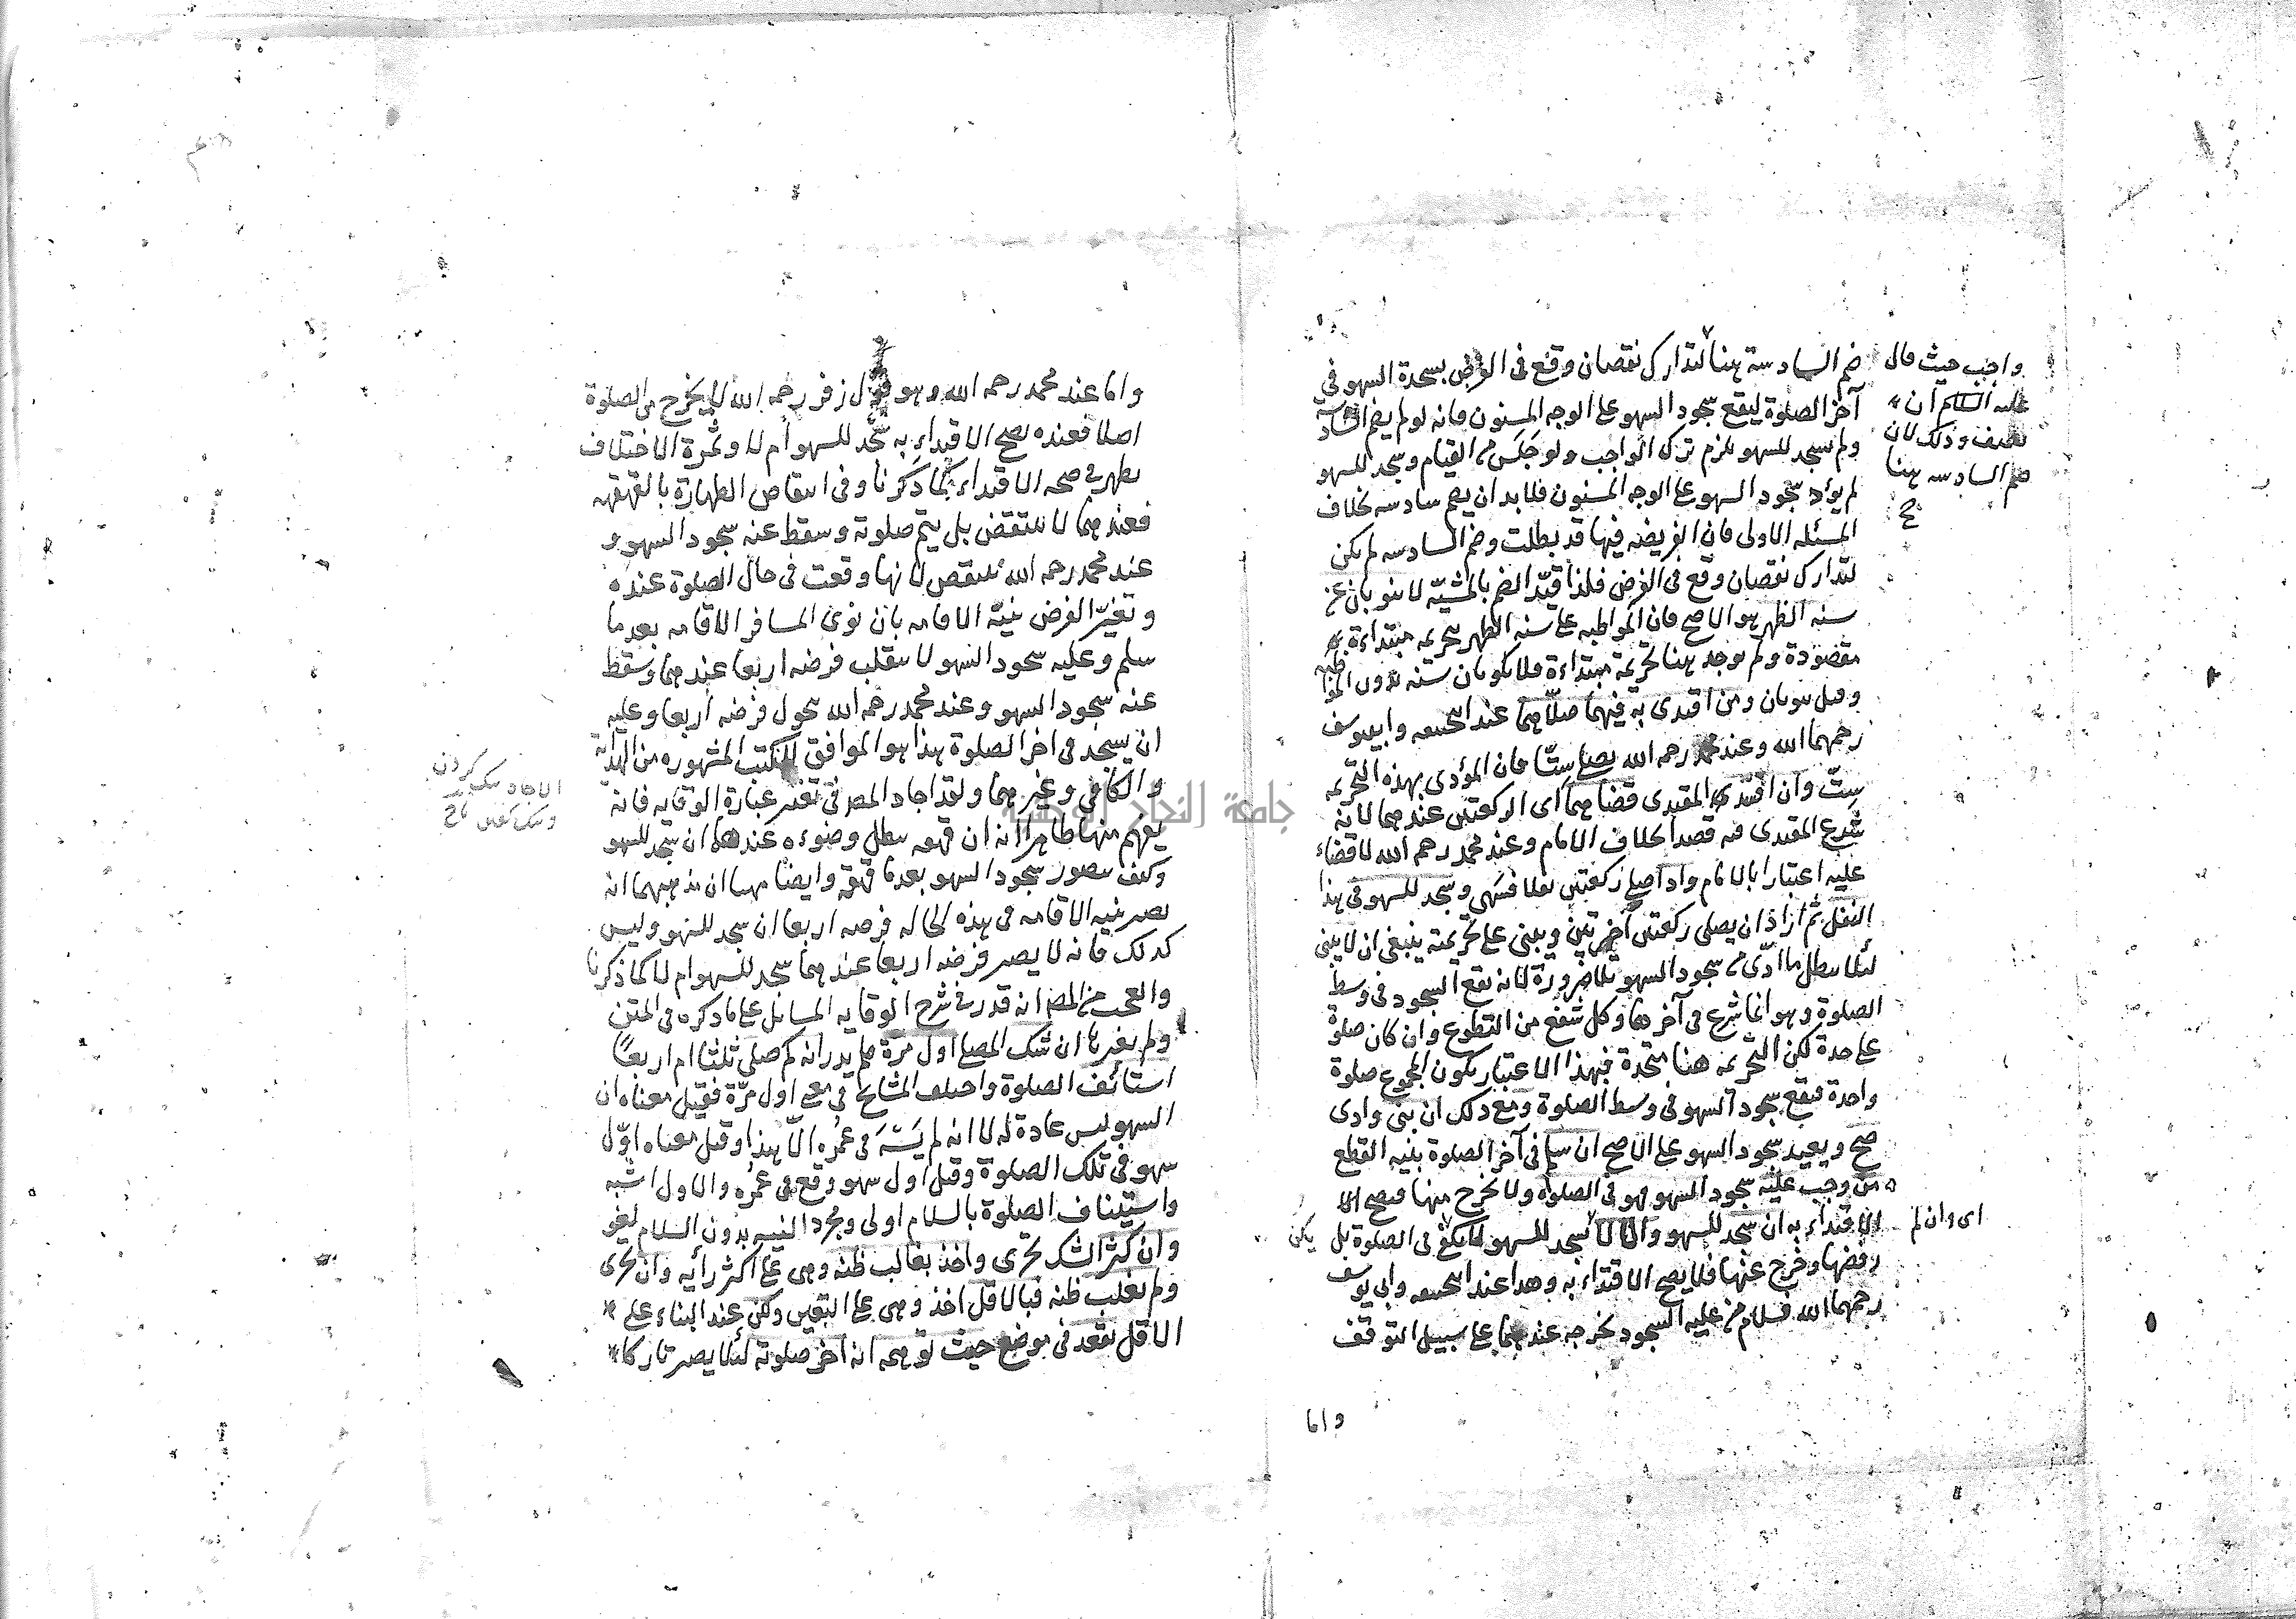 ضم السادسة هنا لتدارك نقصان وقع فى الفرض بسجدة السهو فى
آخر الصلوة ليقع سجود السهو على الوجه المسنون فانه لو لم يضم السادسة
ولم يسجد للسهو يلزم ترك الواجب ولو جلس من القيام وسجد للسهو
لم يؤد سجود السهو على الوجه المسنون فلا بد ان يضم سادسه بخلاف
المسئله الاولى فان الفريضه فيها قد بطلت وضم السادسه لم يكن
لتدارك نقصان وقع فى الفرض فلذا قيّد الضم بالمشيّه لا ينوبان عن
سنه الظهر هو الاصح فان المواظبه على سنه الظهر بتحريمه مبتداءة
مقصودة ولم يوجد هنا تحريمة مبتداءة فلا يكونان سنه بدون المواظبه
وقيل ينوبان ومن اقتدى به فيهما صلّاهما عند ابيحنيفه وابييوسف
رحمهما الله وعند محمد رحمه الله يصلى ستّا فان المؤدى بهذه التحريمه
ستّ وان افسد المقتدى قضاهما اى الركعتين عندهما لانه
شرع المقتدى فيه قصدا بخلاف الامام وعند محمد رحمه الله لا قضاء
عليه اعتبارا بالامام واذا صلى ركعتين نفلا فسهى وسجد للسهو فى هذا
النفل ثم اراد ان يصلى ركعتين اخريين ويبنى على تحريمة ينبغى ان لا يبنى
لئلا يبطل ما ادّى من سجود السهو بلا ضرورة لانه يقع السجود فى وسط
الصلوة وهو انما شرع فى آخرها وكل شفع من التطوع وان كان صلوة
على حدة لكن التحريمه هنا متحدة فبهذا الاعتبار يكون المجموع صلوة
واحدة فيقع سجود السهو فى وسط الصلوة ومع ذلك ان بنى وادى
صح ويعيد سجود السهو على الاصح ان سلم فى آخر الصلوة بنيه القطع
من وجب عليه سجود السهو فهو فى الصلوة ولا يخرج منها فيصح
الاقتداء به ان سجد للسهو والا لا يسجد للسهو لا يكن فى الصلوة بل
رفضها وخرج عنها فلا يصح الاقتداء به وهذا عند ابيحنيفه وابى يوسف
رحمهما الله فسلام من عليه السجود يخرجه عندهما على سبيل التوقف
واجب حيث قال
عليه السلام ان
وذلك لان
ضم السادسه هنا
اى وان لم
يكن
واما
واما عند محمد رحمه الله وهو قول زفر رحمه الله لا يخرج من الصلوة
اصلا فعنده يصح الاقتداء به سجد للسهو ام لا وثمرة الاختلاف
يظهر فى صحه الاقتداء كما ذكرنا وفى انتقاض الطهارة بالقهقهه
فعندهما لا تنتقض بل يتم صلوته وسقط عنه سجود السهو و
عند محمد رحمه الله تنتقض لانها وقعت فى حال الصلوة عنده
وتغيّر الفرض بنيّة الاقامه بان نوى المسافر الاقامه بعد ما
سلم وعليه سجود السهو لا ينقلب فرضه اربعا عندهما وسقط
عنه سجود السهو وعند محمد رحمه الله يتحول فرضه اربعا وعليه
ان يسجد فى اخر الصلوة هذا هو الموافق للكتب المشهوره من الهداية
والكافى وغيرهما ولقد اجاد المص فى تغيير عبارة الوقايه فانه
يفهم منها ظاهرا انه ان قهقه يبطل وضوءه عندهما ان سجد للسهو
وكيف يتصور سجود السهو بعد ما قهقه وايضا ان مذهبهما انه
يصير بنيه الاقامه فى هذه الحاله فرضه اربعا ان سجد للسهو وليس
كذلك فانه لا يصير فرضه اربعا عندهما سجد للسهو ام لا كما ذكرنا
والعجب من المص انه قدر فى شرح الوقايه المسائل على ما ذكره فى المتن
ولم يغيرها ان شك المصلى اول مرة فلم يدر انه كم صلى ثلثا ام اربعًا
استأنف الصلوة واختلف المشايخ فى معنى اول مرّة فقيل معناه ان
السهو ليس عادة له لا انه لم يَسْهَ فى عمُره الّا هذا وقيل معناه اوّل
سهو فى تلك الصلوة وقيل اول سهو وقع فى عمُره والاول اشبه
واستيناف الصلوة بالسلام اولى ومجرد النيه بدون السلام لغو
وان كثر الشك تحرى واخذ بغالب ظنه وبنى على اكثر رأيه وان تحرى
ولم يغلب ظنه فبالاقل اخذ وبنى على اليقين ولكن عند البناء على
الاقل يقعد فى موضع حيث توهمه انه آخر صلوته لئلا يصير تاركا
جامعة النجاح الوطنية